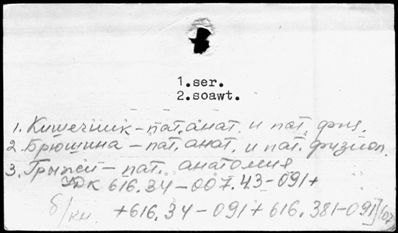 1.ser.
2.soawt.
1. Кишечник – пат. анат. и пат. физ.
2. Брюшина – пат. анат. и пат. физиол.
3. Грыжи – пат. анатомия
УДК 616.34-007.43-091+
б/кн. +616.34-091+616.381-091]